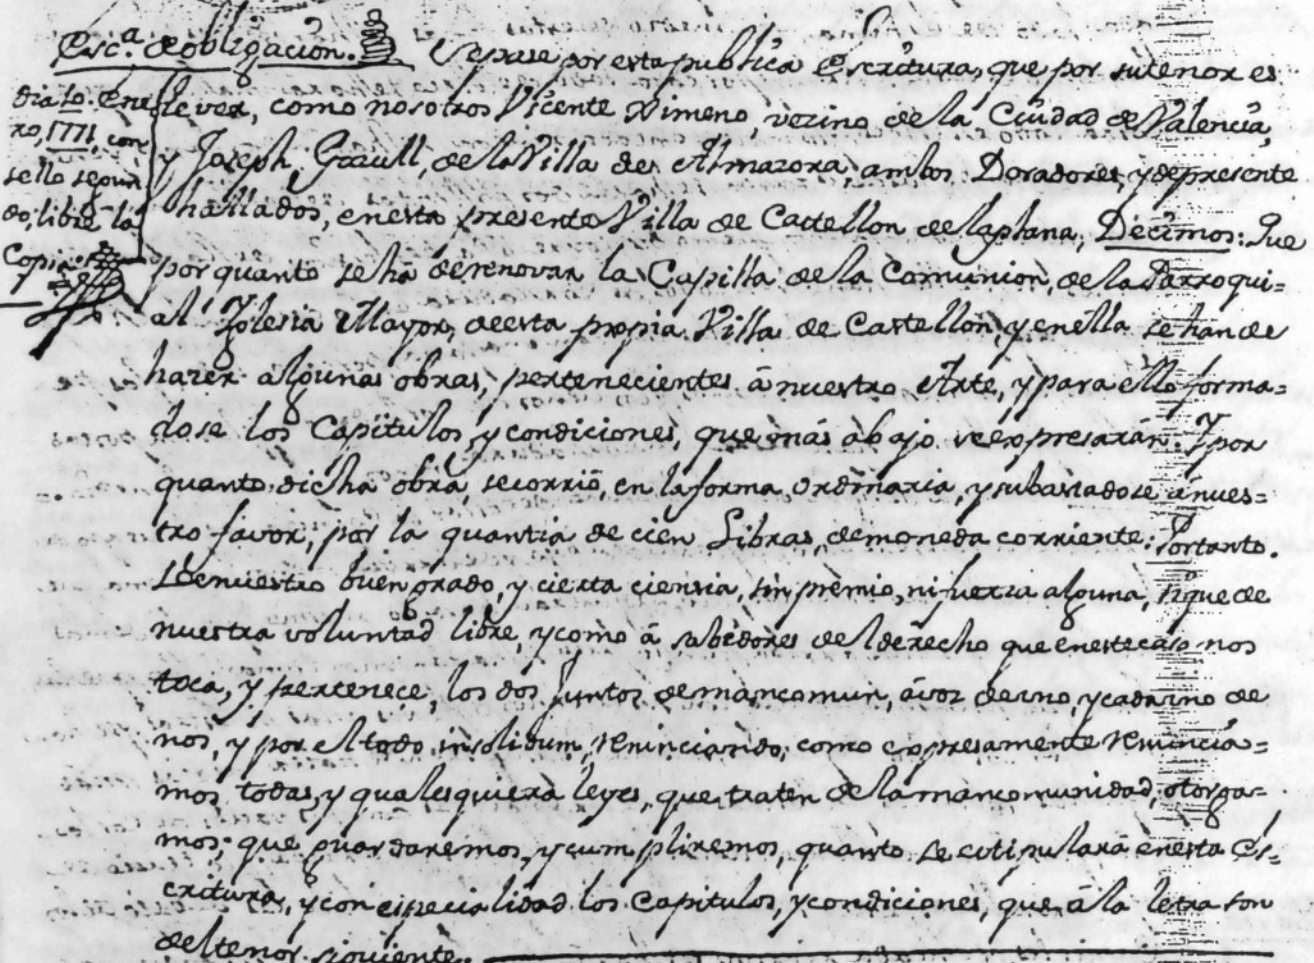 Esc.ª de obligacion.
dia 10. Ene
ro, 1771, con
sello segun
do, libré la
Copia.
Sepase por esta publica Escritura, que por su tenor es
llever, como nosotros Vicente Ximeno, vezino de la Ciudad de Valencia,
y Joseph Graull, de la Villa de Almazora, ambos Doradores, y de presente
hallados, en esta presente Villa de Castellon de la plana, Decimos: Que
por quanto se ha de renovar la Capilla de la Comunion, de la Parroqui=
al Iglesia Mayor, de esta propia Villa de Castellon, y en ella se han de
hazer algunas obras, pertenecientes â nuestro Arte, y para ello forma=
dose los Capitulos, y condiciones, que más abajo se expresarán: Y por
quanto dicha obra, se corrió, en la forma ordinaria, y subastadose â nues=
tro favor, por la quantia de cien Libras, de moneda corriente: Portanto.
De nuestro buen grado, y cierta ciencia, sin premio, ni fuerza alguna, si que de
nuestra voluntad libre, y como â sabedores del derecho que en este caso nos
toca, y pertenece, los dos Juntos de mancomun, â voz de uno, y cada uno de
nos, y por el todo insolidum, renunciando, como expresamente renuncia=
mos, todas, y qualesquiera leyes, que traten de la mancomunidad, otorga=
mos; que guardaremos, y cumpliremos, quanto se estipulará en esta Es=
critura, y con especialidad los Capitulos, y condiciones, que â la letra son
del tenor siguiente.